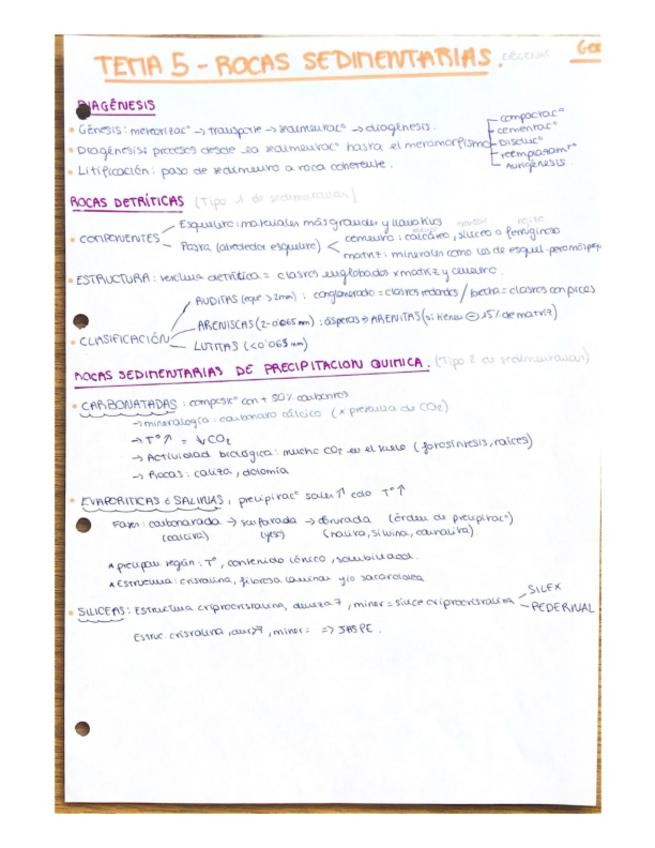 TEMA 5 - ROCAS SEDIMENTARIAS.
DIAGÉNESIS
Génesis: meteorizacº → transporte → sedimentacº → diagénesis.
Diagénesis: procesos desde la sedimentacº hasta el metamorfismo
compactacº
cementacº
Disolucº
reemplazamtº
Autigénesis.
Litificación: paso de sedimento a roca coherente.
ROCAS DETRÍTICAS (Tipo 1 de sedimentarias)
COMPONENTES
Esqueleto: materiales más grandes y llamativos
Pasta (alrededor esqueleto) < cemento: calcáreo, silíceo o ferruginoso
matriz: minerales como los de esquel. pero más peq
ESTRUCTURA: textura detrítica = clastos englobados x matriz y cemento.
CLASIFICACIÓN
RUDITAS (eqne >2mm): conglomerado = clastos redondos / brecha = clastos con picos
ARENISCAS (2-0'065mm): ásperas → ARENITAS (si tienen ⊖ 15% de matriz)
LUTITAS (<0'065mm)
ROCAS SEDIMENTARIAS DE PRECIPITACION QUIMICA. (Tipo 2 de sedimentarias)
CARBONATADAS: composicº con + 50% carbonatos
→ mineralogía: carbonato cálcico (x presencia de CO2)
→ Tº↑ = ↓CO2
→ Actividad biológica: mucho CO2 en el suelo (fotosíntesis, raíces)
→ Rocas: caliza, dolomía
EVAPORÍTICAS o SALINAS, precipitacº sales↑ cdo Tº↑
Fases: carbonatada → sulfatada → clorurada (órden de precipitacº)
(calcita) (yeso) (halita, silvina, carnalita)
precipitan según: Tº, contenido iónico, solubilidad.
Estructura: cristalina, fibrosa laminar y/o sacaroidea
SILICEAS: Estructura criptocristalina, dureza 7, miner = sílice criptocristalina
SILEX
PEDERNAL
Estruc. cristalina, dur>7, miner= => JASPE.